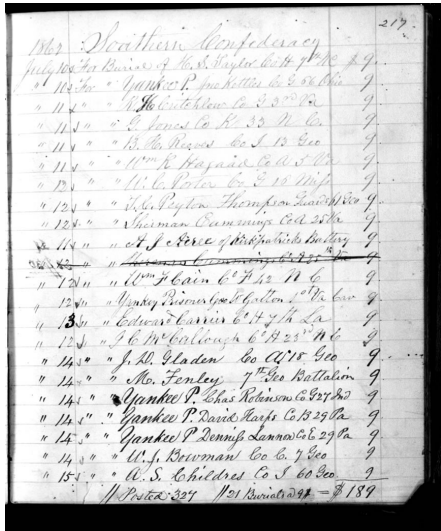 217
1862 Southern Confederacy
July 10 For Burial of H. S. Taylor Co H 7th NC $ 9
" 10 For " Yankee P. Jno Kottles Co G 66 Ohio 9
" 11 " " H Critchlow Co G 3rd Va 9
" 11 " " G. Jones Co K 33 N. C. 9
" 11 " " B. H. Reeves Co I 13 Geo 9
" 11 " " Wm K Co A 5 Va 9
" 13 " " W. C. Porter Co G 16 Miss 9
" 12 " " Peyton Thompson Geo 9
" 12 " " Sherman Cummings Co A 25 Va 9
" 11 " " A J of Kirkpatricks Battery 9
" 12 " " Cummings Co A 25th Va
" 12 " " Wm F Cain Co F 42 N C 9
" 12 " " Yankey Prisoner Geo Galton 1st Va Cav 9
" 13 " " Edward Carrier Co H 7th La 9
" 12 " " McCallough Co H 23rd N C 9
" 14 " " J. D. Gladen Co A 18 Geo 9
" 14 " " M. Fenley 7th Geo Battalion 9
" 14 " " Yankee P. Chas Robinson Co G 27 Ind 9
" 14 " " Yankee P. David Harps Co B 29 Pa 9
" 14 " " Yankee P Dennis Lannon Co E 29 Pa 9
" 14 " " W. J. Bowman Co C. 7 Geo 9
" 15 " " A. S. Childres Co I 60 Geo 9
// Posted 327 // 21 Burials @ 9 = $ 189